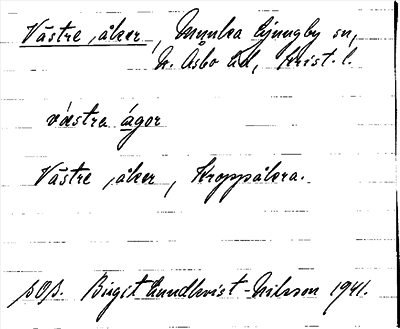 Västre, åker, Munka Ljungby sn,
N. Åsbo hd, Krist. l.
västra ågor
Västre, åker, Kroppåkra.
Birgit Lundkvist-Nilsson 1941.